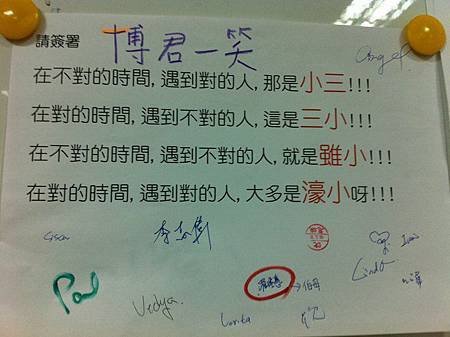 請簽署
博君一笑
在不對的時間, 遇到對的人, 那是小三!!!
在對的時間, 遇到不對的人, 這是三小!!!
在不對的時間, 遇到不對的人, 就是雖小!!!
在對的時間, 遇到對的人, 大多是濠小呀!!!
Paul
Vedya.
Linda
Lunita
→伯母